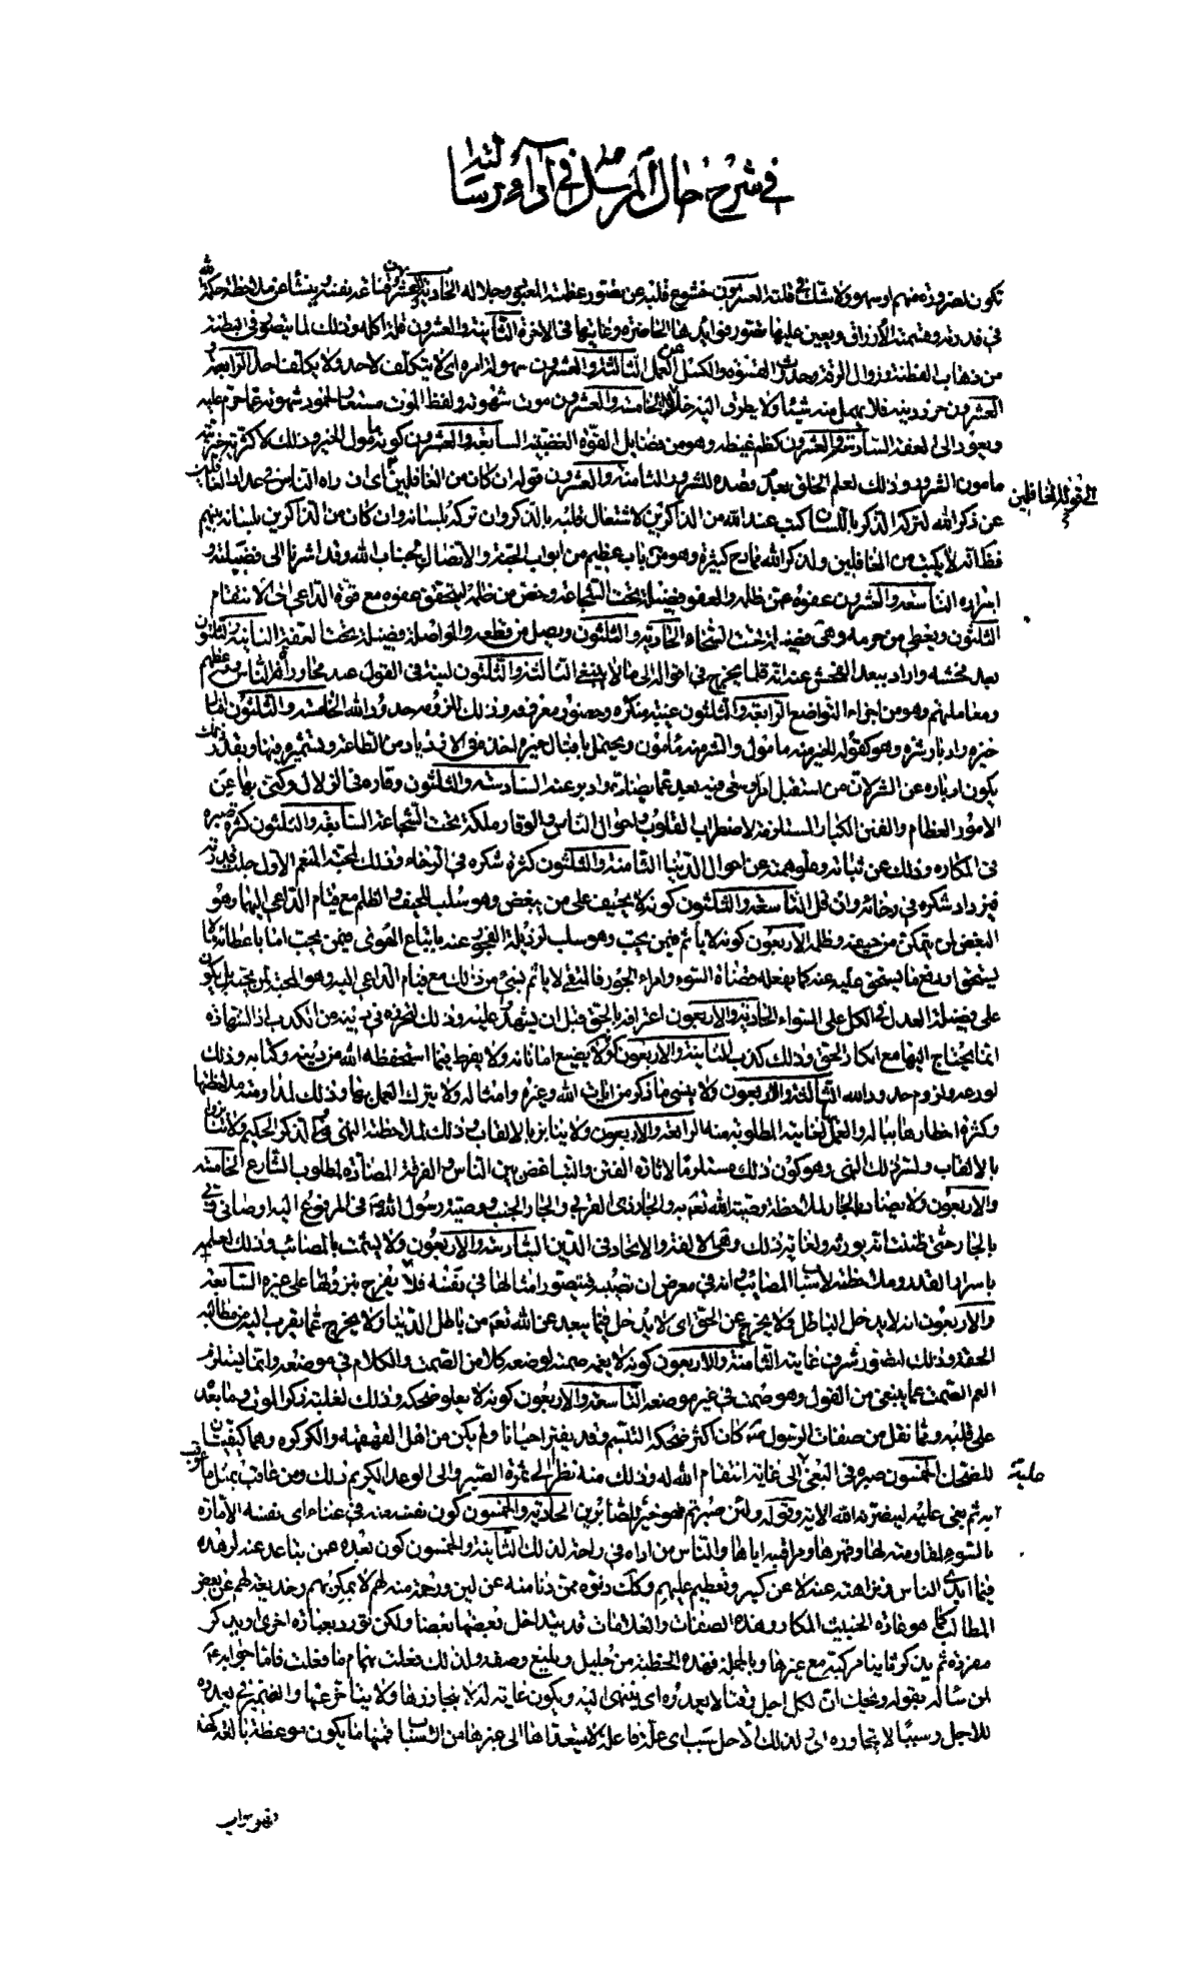 في شرح حال الرسل في أداء رسالته
تكون لضرورة منهم او سهو ولا شك في قلته العشرون خشوع قلبه عن تصور عظمة المعبود وجلاله الحادية والعشرون قناعة نفسه وينشأ عن ملاحظة حكمة الله
في قدرته وقسمته الأرزاق ويعين عليها تصور فوائدها الحاضرة وغايتها في الآخرة الثانية والعشرون قلة اكله وذلك لما يتصور في البطنة
من ذهاب الفطنة وزوال الرقة وحدوث القسوة والكسل عن العمل الثالثة والعشرون سهولة امره اى لا يتكلف لاحد ولا يكلف احدا الرابعة و
العشرون حرز دينه فلا يهمل منه شيئا ولا يطرق اليه خللا الخامسة والعشرون موت شهوته ولفظ الموت مستعار لخمود شهوته عما حرم عليه
ويعود الى العفة السادسة والعشرون كظم غيظه وهو من فضايل القوة الغضبية السابعة والعشرون كونه مأمول الخير وذلك لاكثرية خيريته
مأمون الشرور وذلك لعلم الخلق بعدم قصده للشرور الثامنة والعشرون قوله ان كان من الغافلين اى ان رآه الناس في عداد الغافلين
في الغافلين
عن ذكر الله لتركه الذكر باللسان كتب عند الله من الذاكرين لاشتغال قلبه بالذكر وان تركه بلسانه وان كان من الذاكرين بلسانه بينهم
فظاهر انه لا يكتب من الغافلين ولذكر الله ممادح كثيرة وهو من باب عظيم من ابواب الجنة والاتصال بجناب الله وقد اشرنا الى فضيلته و
اسراره التاسعة والعشرون عفوه عمن ظلمه والعفو فضيلة تحت الشجاعة وخص من ظلمه ليتحقق عفوه مع قوة الداعي الى الانتقام
الثلثون ويعطي من حرمه وهى فضيلة تحت السخاء الحادية والثلثون ويصل من قطعه والمواصلة فضيلة تحت العفة الثانية والثلثون
بعد فحشه واراد ببعد الفحش عنه انه قلما يخرج في اقواله الى ما لا ينبغي الثالثة والثلثون لينه في القول عند محاورات الناس ووعظهم
ومعاملتهم وهو من اجزاء التواضع الرابعة والثلثون غيبة منكره وحضور معروفه وذلك للزومه حدود الله الخامسة والثلثون اقبال
خيره وادبار شره وهو كقوله الخير منه مأمول والشر منه مأمون ويحتمل باقبال خيره اخذه في الازدياد من الطاعة وتشميره فيها وبقدر ذلك
يكون ادباره عن الشر لان من استقبل امرا وسعى فيه بعد عما يضاده وادبر عنه السادسة والثلثون وقاره في الزلازل وكنى بها عن
الامور العظام والفتن الكبار المستلزمة لاضطراب القلوب واحوال الناس والوقار ملكة تحت الشجاعة السابعة والثلثون كثرة صبره
في المكاره وذلك عن ثباته وعلو همته عن احوال الدنيا الثامنة والثلثون كثرة شكره في الرخاء وذلك لمحبته المنعم الاول جلت قدرته
فيزداد شكره في رخائه وان قل التاسعة والثلثون كونه لا يحيف على من يبغض وهو سلب للحيف والظلم مع قيام الداعي اليهما وهو
البغض لمن يتمكن من حيفه وظلمه الاربعون كونه لا يأثم فيمن يحب وهو سلب لرذيلة الفجور عنه باتباع الهوى فيمن يحب اما باعطائه ما لا
يستحق او دفع ما يستحق عليه عنه كما يفعله قضاة السوء وامراء الجور فالمتقى لا يأثم بشىء من ذلك مع قيام الداعي اليه وهو المحبة لمن يحبه بل يكون
على فضيلة العدل في الكل على السواء الحادية والاربعون اعترافه بالحق قبل ان يشهد عليه وذلك لتحرزه في دينه من الكذب اذ الشهادة
انما يحتاج اليها مع انكار الحق وذلك كذب الثانية والاربعون كونه لا يضيع اماناته ولا يفرط فيما استحفظه الله من دينه وكتابه وذلك
لورعه ولزوم حدود الله الثالثة والاربعون ولا ينسى ما ذكر من ايات الله وعبره وامثاله ولا يترك العمل بها وذلك لمداومته ملاحظتها
وكثرة اخطارها بباله والعمل لغايته المطلوبة منه الرابعة والاربعون ولا ينابز بالالقاب وذلك لملاحظته النهى في الذكر الحكيم ولا تنابزوا
بالالقاب ولسر ذلك النهى وهو كون ذلك مستلزما لاثارة الفتن والتباغض بين الناس والفرقة المضادة لمطلوب الشارع الخامسة
والاربعون ولا يضار بالجار لملاحظة وصية الله تعم به والجار ذى القربى والجار الجنب ووصية رسول الله ص في المرفوع اليه اوصانى ربى
بالجار حتى ظننت انه يورثه ولغاية ذلك وهى الالفة والاتحاد في الدين السادسة والاربعون ولا يشمت بالمصائب وذلك لعلمه
باسرار القدر وملاحظته لاسباب المصائب وانه في معرض ان تصيبه فيتصور امثالها في نفسه فلا يفرح بنزولها على غيره السابعة
والاربعون انه لا يدخل في الباطل ولا يخرج عن الحق اى لا يدخل فيما يبعد عن الله تعم من باطل الدنيا ولا يخرج عما يقرب اليه من مطالبه
الحقة وذلك لتصور شرف غايته الثامنة والاربعون كونه لا يغمه صمته لوضعه كلا من الصمت والكلام في موضعه وانما يستلزم
الغم الصمت عما ينبغى من القول وهو صمت في غير موضعه التاسعة والاربعون كونه لا يعلو ضحكه وذلك لغلبة ذكر الموت وما بعده
على قلبه ومما نقل من صفات الرسول ص كان اكثر ضحكه التبسم وقد يفتر احيانا ولم يكن من اهل القهقهة والكركرة وهما كيفيتان
للضحك الخمسون صبره في البغى عليه الى غاية انتقام الله له وذلك منه نظرا الى ثمرة الصبر والى الوعد الكريم ذلك ومن عاقب بمثل ما عوقب
عليه
به ثم بغى عليه لينصرنه الله الاية وقوله ولئن صبرتم لهو خير للصابرين الحادية والخمسون كون نفسه منه في عناء اى نفسه الامارة
بالسوء لمقاومته لها وقهرها ومراقبته اياها والناس من اذاه في راحة لذلك الثانية والخمسون كون بعده عمن تباعد عنه لزهده
فيما ايدى الناس ونزاهته عنه لا عن كبر وتعظيم عليهم وكذلك دنوه ممن دنا منه عن لين ورحمة منه لهم لا بمكر بهم وخديعة لهم عن بعض
المطالب كما هو عادة الخبيث المكار وهذه الصفات والعلامات قد يتداخل بعضها بعضا ولكن تورد بعبارة اخرى او يذكر
مفردة ثم يذكر ثانيا مركبة مع غيرها وبالجملة فهذه الخطبة من جليل وبليغ وصفه ولذلك فعلت بهمام ما فعلت فاما جوابه ع
لمن سأله بقوله ويحك ان لكل اجل وقتا لا يعدوه اى ينتهى اليه ويكون غاية له لا يتجاوزها ولا يتأخر عنها والضمير في يعدوه
للاجل وسببا لا يتجاوزه اى ولذلك الاجل سبب اى علة فاعلة لا يتعداها الى غيرها من الاسباب فمنها ما يكون موعظة بالغة كهذه
فهو جواب